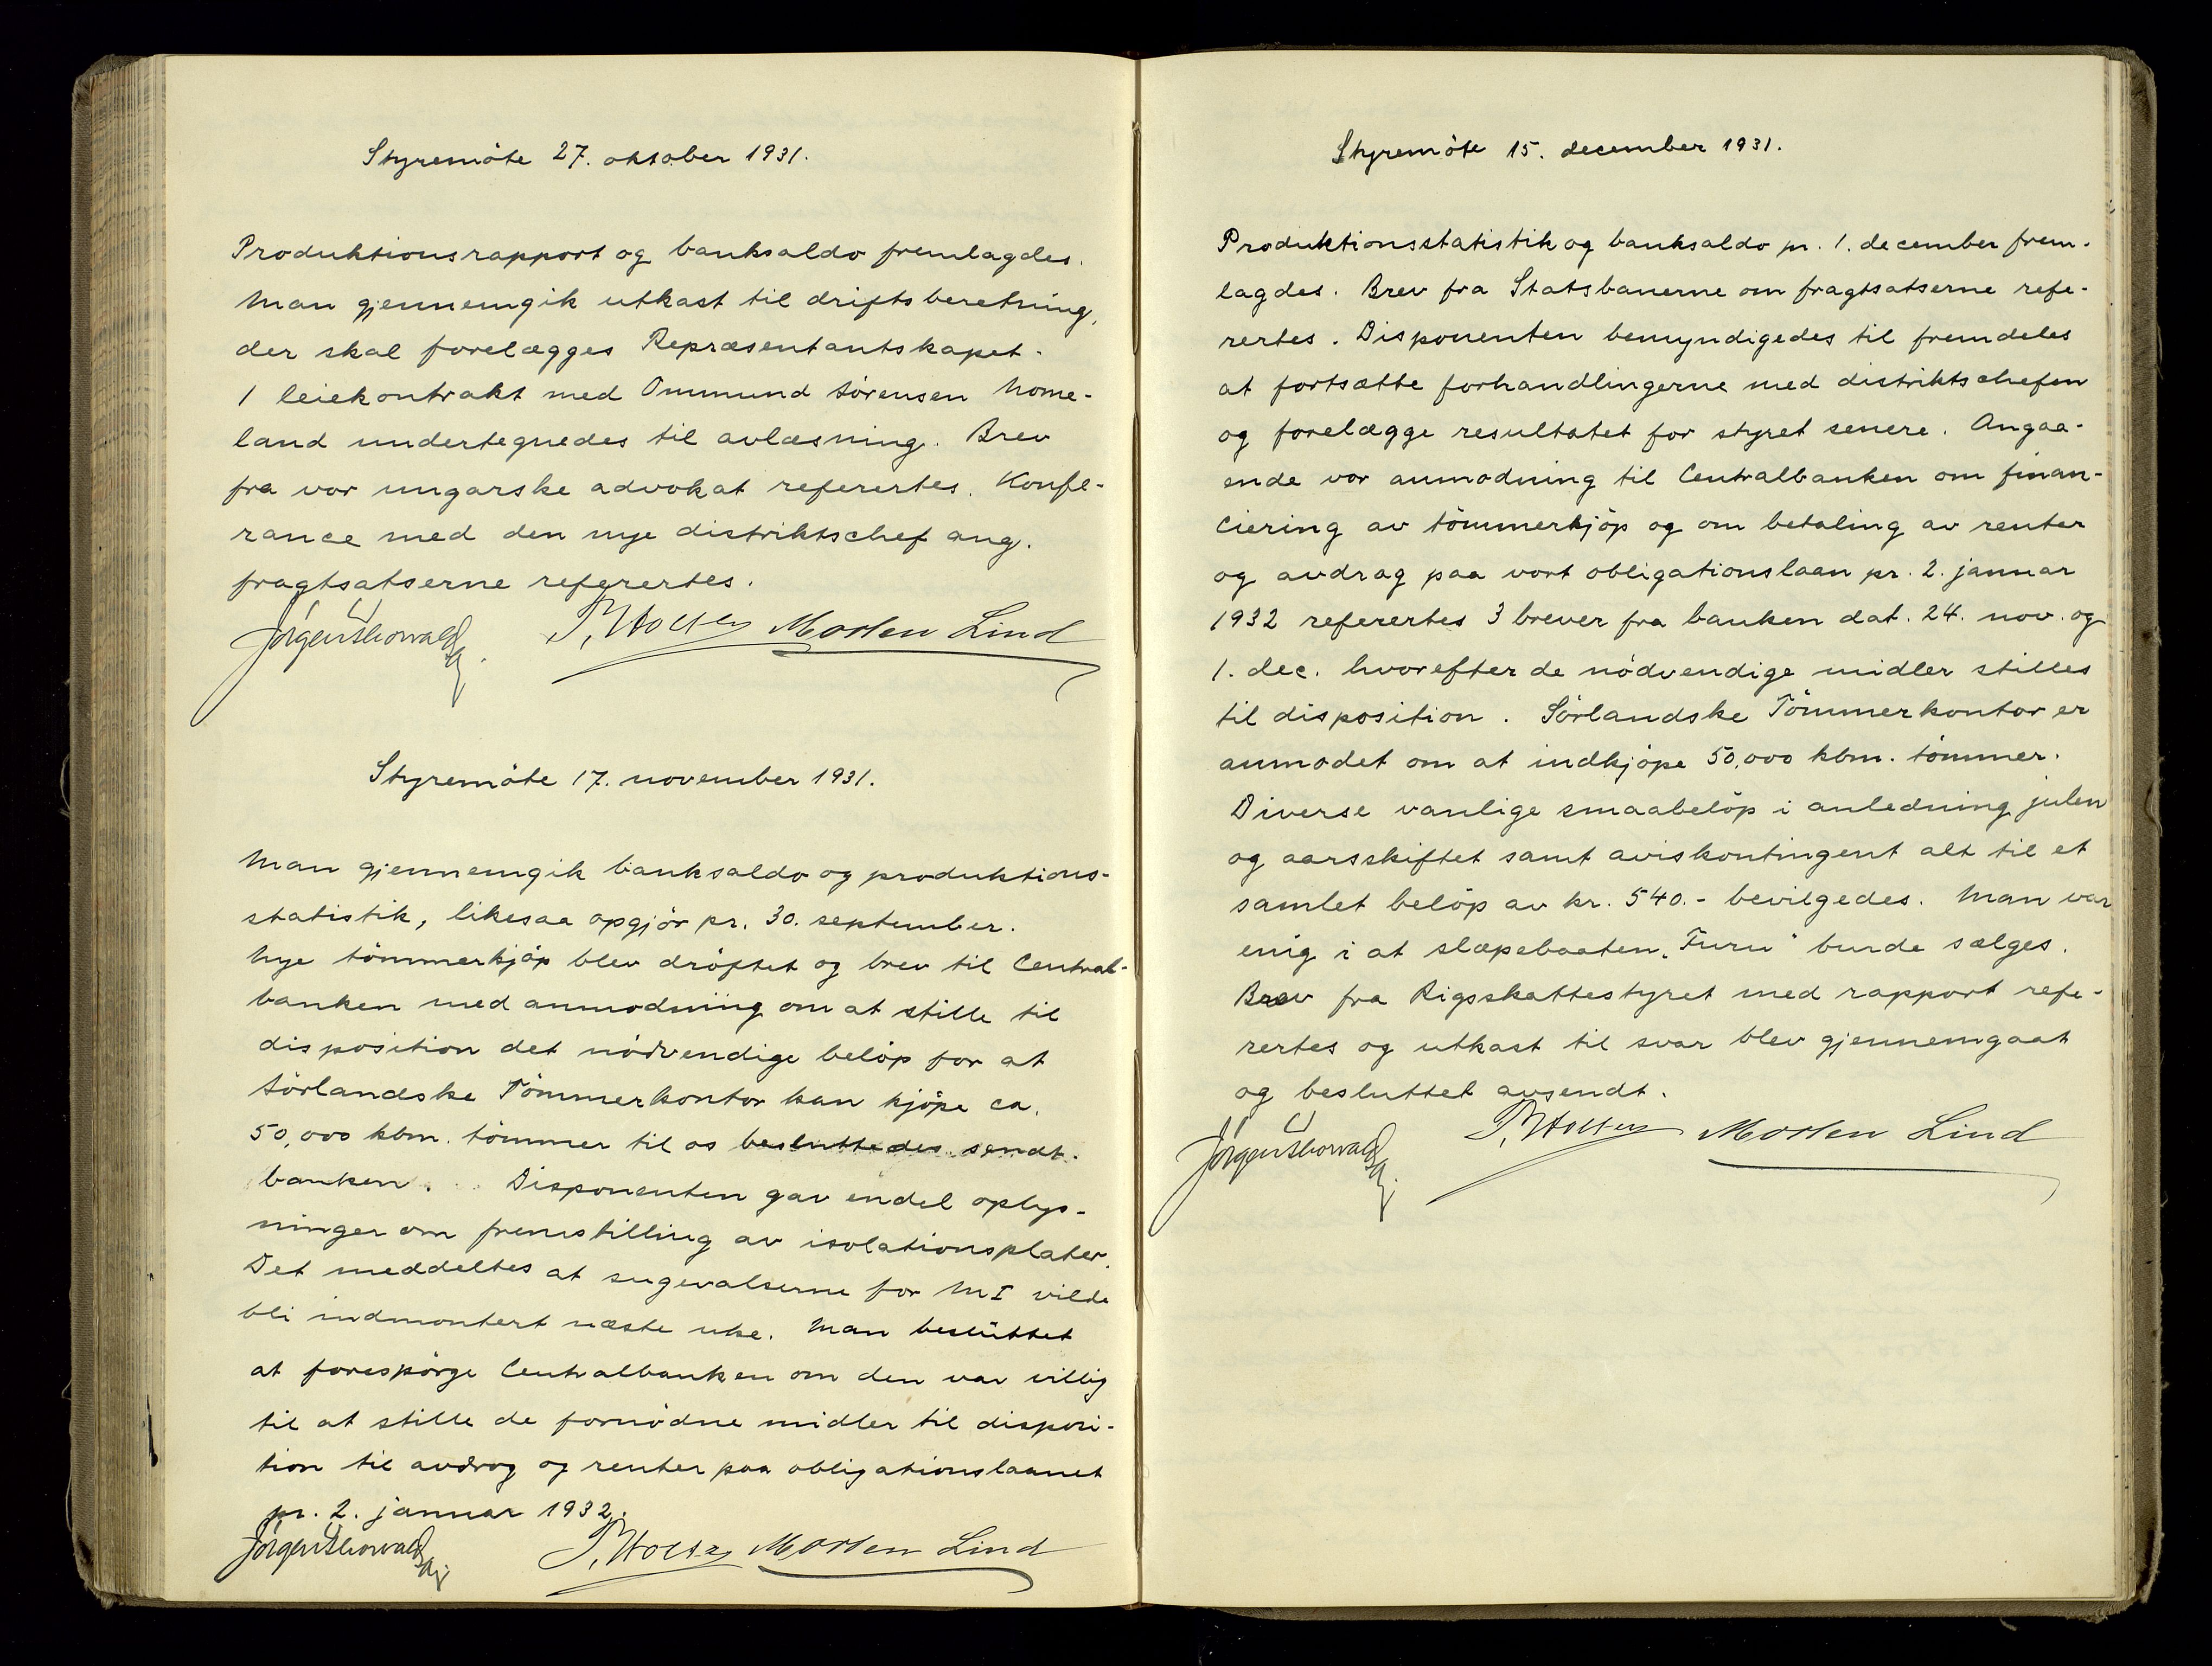 Styremöte 27. oktober 1931.
Produktionsrapport og banksaldo fremlagdes.
Man gjennemgik utkast til driftsberetning,
der skal forelægges Repræsentantskapet.
1 leiekontrakt med Ommund Sörensen Home-
land undertegnedes til avlæsning. Brev
fra vor ungarske advokat referertes. Konfe-
rance med den nye distriktschef ang.
fragtsatserne referertes.
Morten Lind
Styremöte 17. november 1931.
Man gjennemgik banksaldo og produktions-
statistik, likesaa opgjör pr. 30. september.
Nye tömmerkjöp blev dröftet og brev til Central-
banken med anmodning om at stille til
disposition det nödvendige belöp for at
Sörlandske Tömmerkontor kan kjöpe ca.
50,000 kbm. tömmer til os besluttedes sendt
banken. Disponenten gav endel oplys-
ninger om fremstilling av isolationsplater.
Det meddeltes at sugevalserne for M I vilde
bli indmontert næste uke. Man besluttet
at forespörge Centralbanken om den var villig
til at stille de fornödne midler til disposi-
tion til avdrag og renter paa obligationslaanet
pr. 2. januar 1932.
Morten Lind
Styremöte 15. december 1931.
Produktionsstatistik og banksaldo pr. 1. december frem-
lagdes. Brev fra Statsbanerne om fragtsatserne refe-
rertes. Disponenten bemyndigedes til fremdeles
at fortsætte forhandlingerne med distriktschefen
og forelægge resultatet for styret senere. Angaa-
ende vor anmodning til Centralbanken om finan-
ciering av tömmerkjöp og om betaling av renter
og avdrag paa vort obligationslaan pr. 2. januar
1932 referertes 3 brever fra banken dat. 24. nov. og
1. dec. hvorefter de nödvendige midler stilles
til disposition. Sörlandske Tömmerkontor er
anmodet om at indkjöpe 50,000 kbm. tömmer.
Diverse vanlige smaabelöp i anledning julen
og aarsskiftet samt aviskontingent alt til et
samlet belöp av kr. 540.- bevilgedes. Man var
enig i at slæpebaaten „Furu" burde sælges.
Brev fra Rigsskattestyret med rapport refe-
rertes og utkast til svar blev gjennemgaat
og besluttet avsendt.
Morten Lind